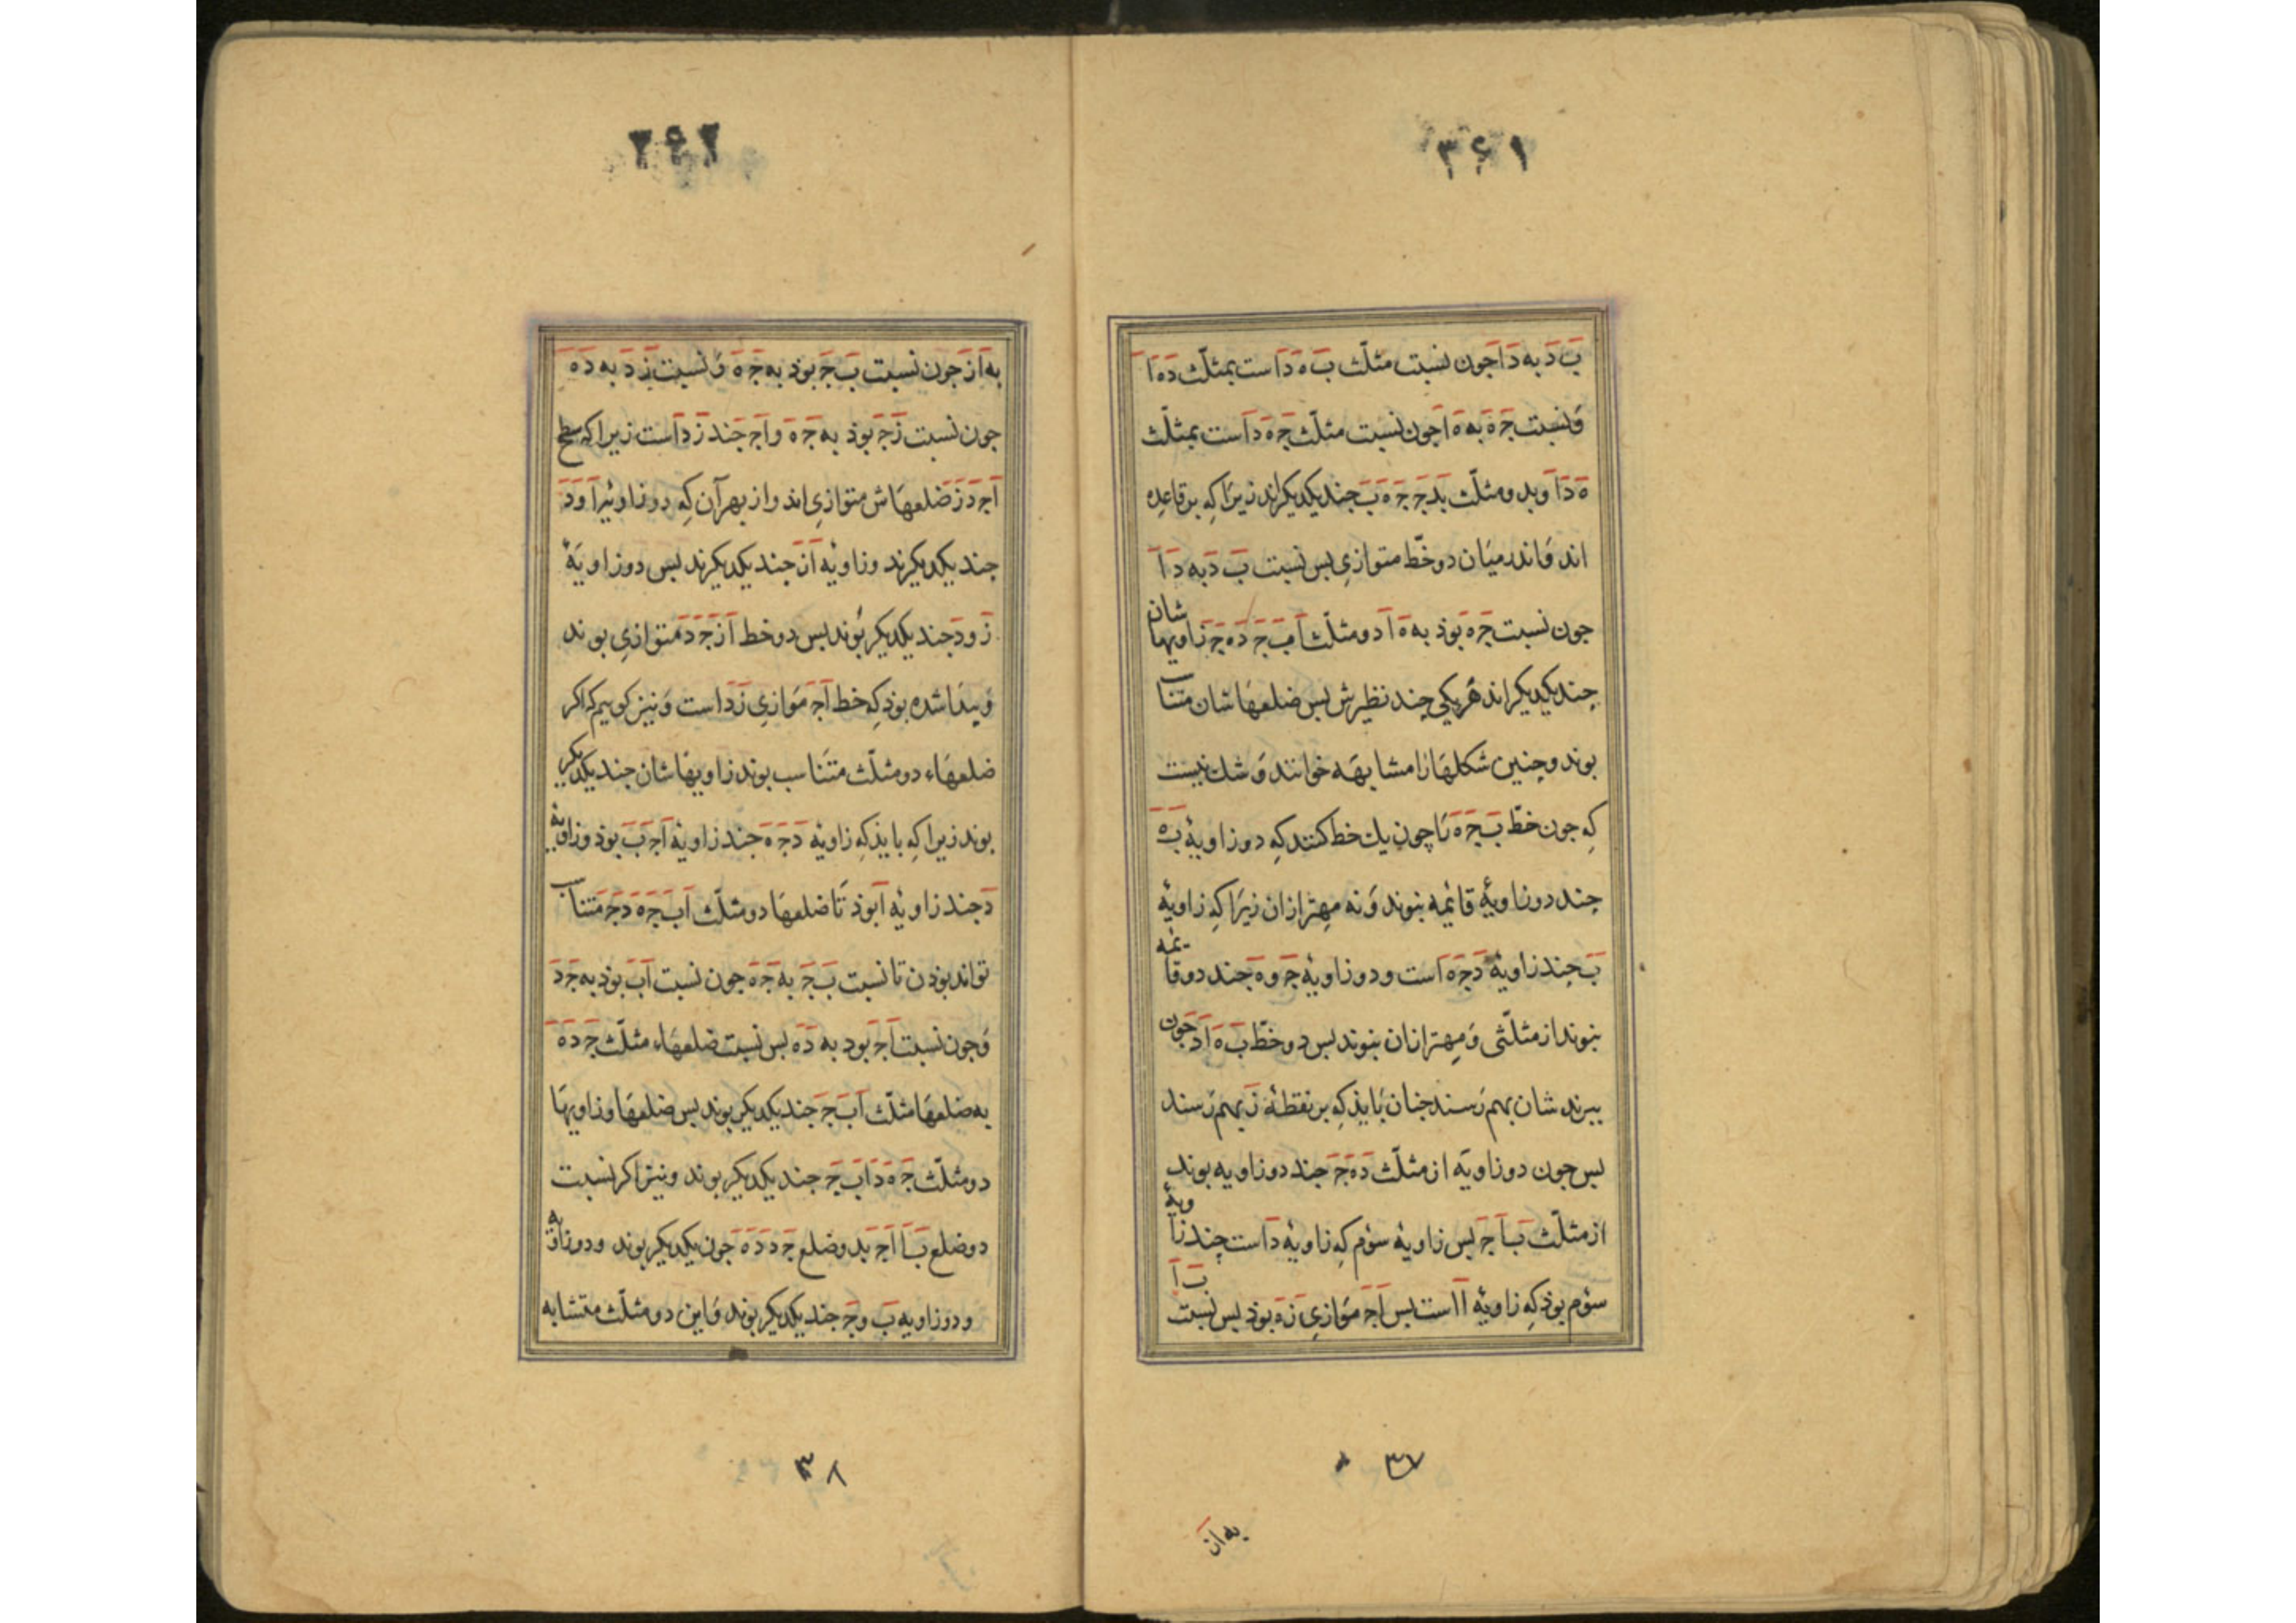 ۳۶۱
بَ دَ به دَ اَ جون نسبت مثلّث بَ ه دَ است بمثلّث دَ ه ا
وَ نسبت جَ ه به ه اَ جون نسبت مثلّث جَ ه دَ است بمثلّث
ه دَ اَ وبد ومثلّث بَدجَ جَ ه بَ جند یکدیکراند زیرَا کِه بر قاعِده
اند وَ اندر میَان دو خّط متوازیِ بس نسبت بَ دَ به دَ اَ
جون نسبت جَ ه بوذ به ه اَ دو مثلّث اَ بَ جَ دَ ه جَ زاویها شان
جند یکدیکراند هَر یکی جند نظیرش بس ضلعهَا شان متناسب
بوند وجنین شکلهَا را مشابهَه خوانند وَ شك نیست
کِه جون خطّ بَ جَ ه رَا جون یك خط کنند کِه دو زاویهٔ بَ ه
جند دو زاویهٔ قائمه نبوند وَ نه مهتر ازان زیرَا کِه زاویهٔ
بَ جند زاویهٔ دَ جَ ه است ودو زاویهٔ جَ وه جند دو قائمه
نبوند از مثلّثی وَ مهتر ازان نبوند بس دو خطّ بَ ه اَ دَ جون
ببرند شان بهم رَسند جنان بَایذ کِه بر نقطهٔ زَ بهم رَسند
بس جون دو زاویَه از مثلّث دَ ه جَ جند دو زاویه بوند
از مثلّث بَ اَ جَ بس زاویهٔ سوٌم کِه زاویهٔ دَ است جند زاویهٔ
سوٌم بوذ کِه زاویهٔ اَ است بس اَ جَ موَازیِ زَ ه بوذ بس نسبت بَ اَ
۳۷
به از
۲۶۲
به اَ زَ جون نسبت بَ جَ بوذ به جَ ه وَ نسبت زَ دَ به دَ ه
جون نسبت زَ جَ بوذ به جَ ه و اَ جَ جند زَ دَ است زیرا که سطح
اَ جَ دَ زَ ضلعهَاش متوازیِ اند و از بهر آن کِه دو زاویهٔ اَ وَ دَ
جند یکدیکرند وزاویهٔ اَ زَ جند یکدیکرند بس دو زاویَهٔ
زَ ودَ جند یکدیکر بُوند بس دو خط اَ زَ جَ دَ متوازیِ بوند
وَ بیدَا شده بوذ کِه خط اَ جَ موَازیِ زَ دَ است وَ نیز کوییم که اکر
ضلعهَاء دو مثلّث متنَاسب بوند زاویهَا شان جند یکدیکر
بوند زیرا کِه بایذ کِه زاویَهٔ دَ جَ ه جند زاویهٔ اَ جَ بَ بوذ وزاویهٔ
دَ جند زاویهٔ اَ بوذ تَا ضلعهَا دو مثلّث اَ بَ جَ ه دَ جَ متناسب
تواند بوذن تا نسبت بَ جَ به جَ ه جون نسبت اَ بَ بوذ به جَ دَ
وَ جون نسبت اَ جَ بود به دَ ه بس نسبت ضلعهَاء مثلّث جَ دَ ه
به ضلعهَا مثلّث اَ بَ جَ جند یکدیکر بوند بس ضلعهَا وزاویهَا
دو مثلّث جَ ه دَ اَ بَ جَ جند یکدیکر بوند ونیز اکر نسبت
دو ضلع بَ اَ اَ جَ بدو ضلع جَ دَ دَ ه جون یکدیکر بوند ودو زاویه
ودو زاویه بَ وجَ جند یکدیکر بوند وَ این دو مثلّث متشابه
۳۸